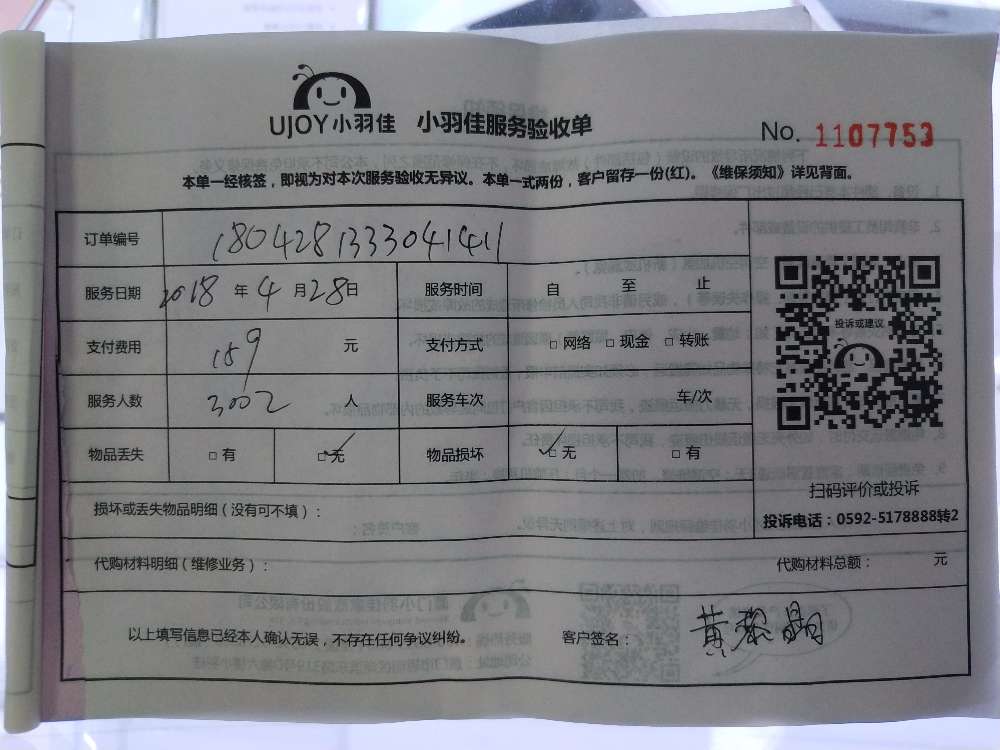 UJOY小羽佳 小羽佳服务验收单
No. 1107753
本单一经核签，即视为对本次服务验收无异议。本单一式两份，客户留存一份(红)。《维保须知》详见背面。
订单编号 180428133304141
服务日期 2018 年 4 月 28 日 服务时间 自 至 止
支付费用 159 元 支付方式 □ 网络 □ 现金 □ 转账
服务人数 3002 人 服务车次 车/次
物品丢失 □ 有 □ 无 物品损坏 □ 无 □ 有
投诉或建议
扫码评价或投诉
投诉电话：0592-5178888转2
损坏或丢失物品明细（没有可不填）：
代购材料明细（维修业务）： 代购材料总额： 元
以上填写信息已经本人确认无误，不存在任何争议纠纷。 客户签名： 黄